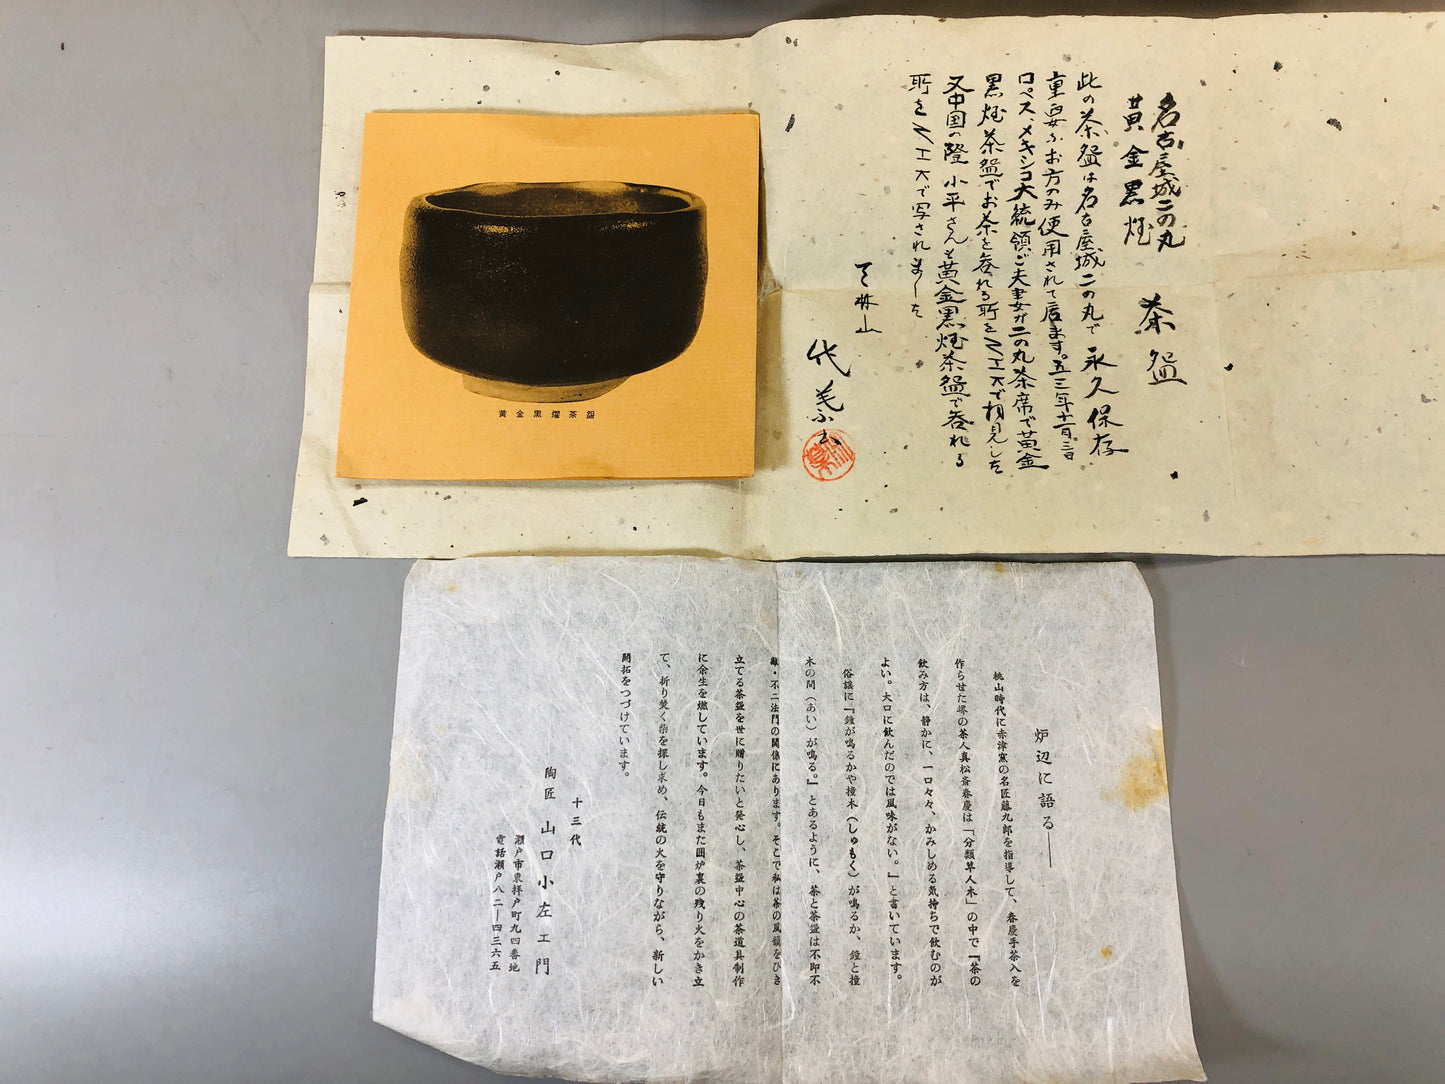 名古屋城二の丸
黄金黒燿 茶盌
此の茶盌は名古屋城二の丸で永久保存
重要なお方のみ使用されて居ます。五三年十一月三日
ロペス、メキシコ大統領ご夫妻が二の丸茶席で黄金
黒燿茶盌でお茶を呑れる所をTVで拝見した
又中国の鄧小平さんも黄金黒燿茶盌で呑れる
所をTVで写されました
黄金黒燿茶盌
炉辺に語る――
桃山時代に赤津窯の名匠藤九郎を指導して、春慶手茶入を
作らせた堺の茶人真松斎春慶は「分類草人木」の中で『茶の
飲み方は、静かに、一口々々、かみしめる気持ちで飲むのが
よい。大口に飲んだのでは風味がない。』と書いています。
俗謡に『鐘が鳴るかや撞木(しゅもく)が鳴るか、鐘と撞
木の間(あい)が鳴る。』とあるように、茶と茶盌は不即不
離・不二法門の関係にあります。そこで私は茶の風韻をひき
立てる茶盌を世に贈りたいと発心し、茶盌中心の茶道具制作
に余生を燃しています。今日もまた囲炉裏の残り火をかき立
て、折り焚く柴を探し求め、伝統の火を守りながら、新しい
開拓をつづけています。
十三代
陶匠 山口小左ェ門
瀬戸市東拝戸町九四番地
電話瀬戸八二―四三六五